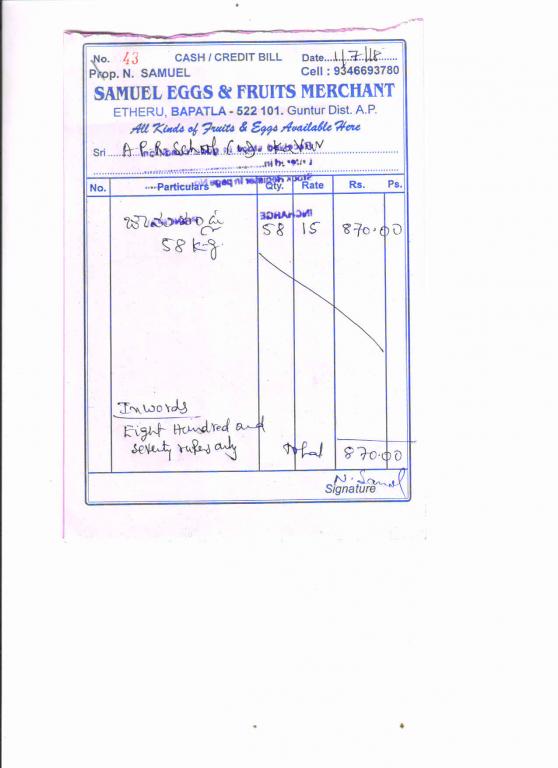 No. 43 CASH / CREDIT BILL Date...1/7/18......
Prop. N. SAMUEL Cell : 9346693780
SAMUEL EGGS & FRUITS MERCHANT
ETHERU, BAPATLA - 522 101. Guntur Dist. A.P.
All Kinds of Fruits & Eggs Available Here
Sri
No. Particulars Qty. Rate Rs. Ps.
58 15 870.00
58 kg
Inwords
Eight Hundred and
seventy rupes only Total 870.00
N. Samel
Signature